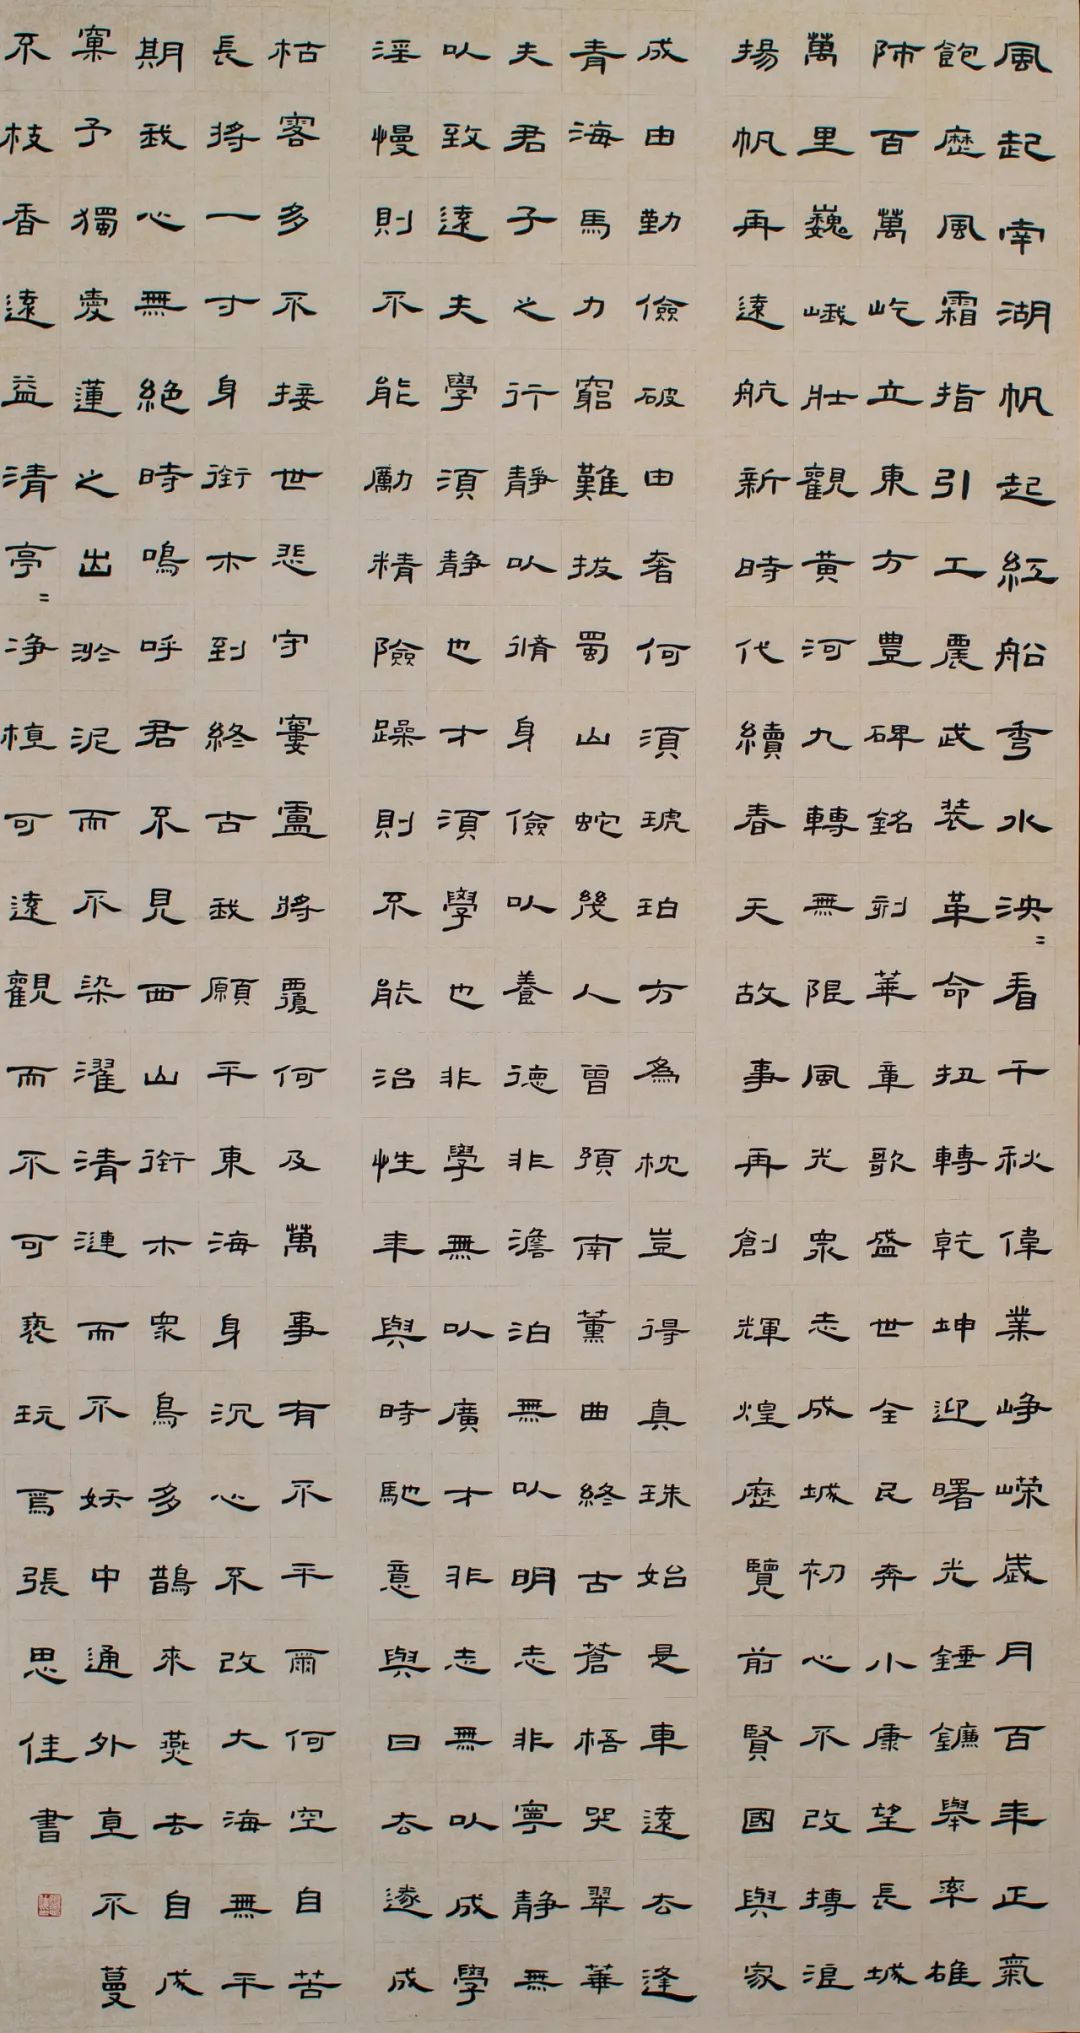 風起南湖帆起紅船秀水泱〻看千秋偉業崢嶸歲月百年正氣
飽歷風霜指引工農武裝革命扭轉乾坤迎曙光錘鐮舉率雄
師百萬屹立東方豐碑銘刻華章歌盛世全民奔小康望長城
萬里巍峨壯觀黃河九轉無限風光眾志成城初心不改搏浪
揚帆再遠航新時代續春天故事再創輝煌歷覽前賢國與家
成由勤儉破由奢何須琥珀方為枕豈得真珠始是車遠去逢
青海馬力窮難拔蜀山蛇幾人曾預南薰曲終古蒼梧哭翠華
夫君子之行靜以脩身儉以養德非澹泊無以明志非寧静無
以致遠夫學須静也才須學也非學無以廣才非志無以成學
淫慢則不能勵精險躁則不能治性年與時馳意與日去遂成
枯客多不接世悲守窶盧將覆何及萬事有不平爾何空自苦
長將一寸身銜木到終古我願平東海身沉心不改大海無平
期我心無絕時鳴呼君不見西山銜木眾鳥多鵲來燕去自成
窠予獨愛蓮之出淤泥而不染濯清漣而不妖中通外直不蔓
不枝香遠益清亭〻净植可遠觀而不可褻玩焉張思佳書